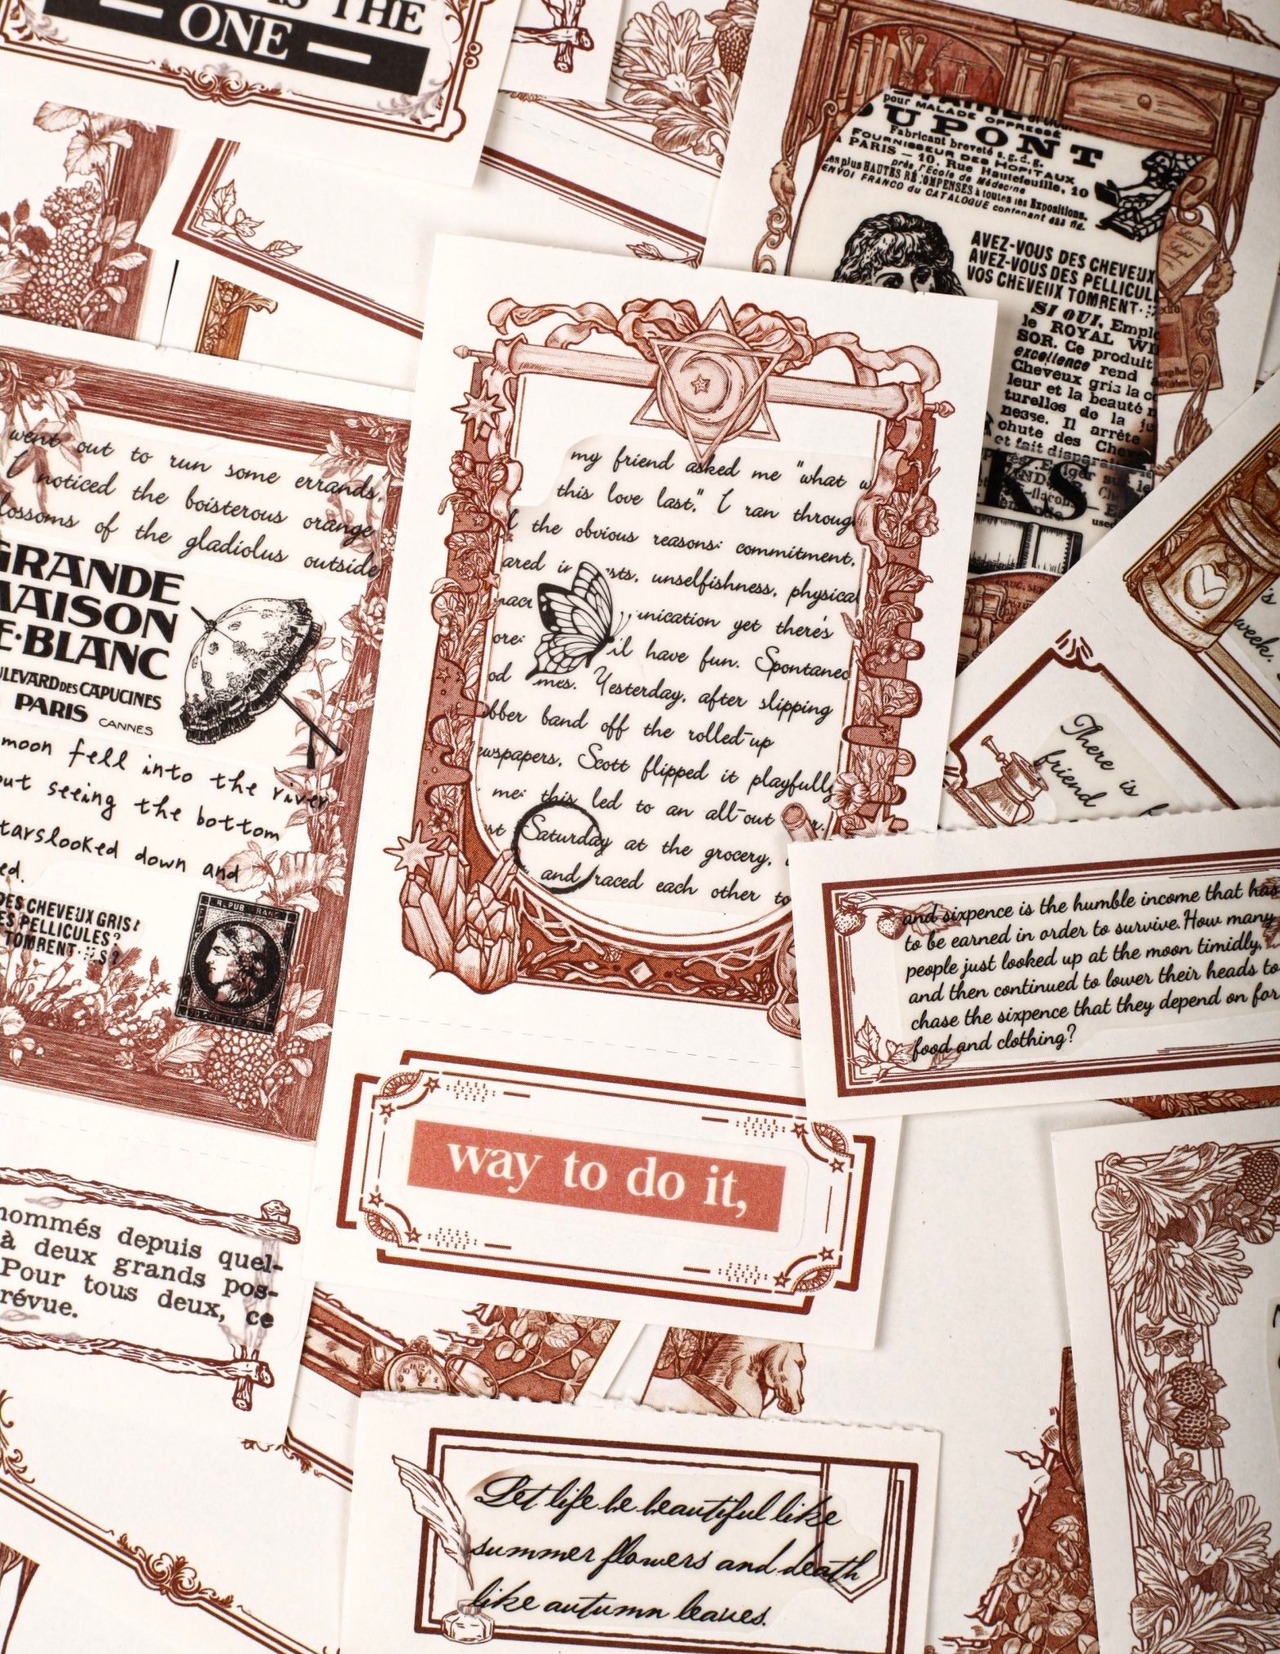 AS THE
ONE
pour MALADE OPPRESSÉ
DUPONT
Fabricant breveté s.g.d.g.
FOURNISSEUR DES HOPITAUX
A PARIS — 10, Rue Hautefeuille, 10
près l'Ecole de Médecine
les plus HAUTES RÉCOMPENSES à toutes les Expositions.
ENVOI FRANCO du CATALOGUE contenant
AVEZ-VOUS DES CHEVEUX
AVEZ-VOUS DES PELLICUL
VOS CHEVEUX TOMRENT-
SI OUI, Emplo
le ROYAL WI
SOR. Ce produit
excellence rend
Cheveux gris la co
leur et la beauté n
turelles de la
nesse. Il arrête
chute des Chev
et fait disparai
KS
went out to run some errands,
I noticed the boisterous orange
lossoms of the gladiolus outside
GRANDE
MAISON
E·BLANC
ULEVARD DES CAPUCINES
PARIS CANNES
moon fell into the river
out seeing the bottom
tarslooked down and
ed.
DES CHEVEUX GRIS?
ES PELLICULES?
TOMRENT-ILS?
R. PUB
my friend asked me "what
this love last," I ran throug
the obvious reasons: commitment,
ared sts, unselfishness, physical
unication yet there's
ore: have fun. Spontaneo
od mes. Yesterday, after slipping
bber band off the rolled-up
ewspapers, Scott flipped it playfully
me: this led to an all-out
st Saturday at the grocery,
and raced each other to
way to do it,
's
week.
There is
friend
and sixpence is the humble income that has
to be earned in order to survive. How many
people just looked up at the moon timidly,
and then continued to lower their heads to
chase the sixpence that they depend on for
food and clothing?
nommés depuis quel-
à deux grands pos-
Pour tous deux, ce
révue.
Let life be beautiful like
summer flowers and death
like autumn leaves.